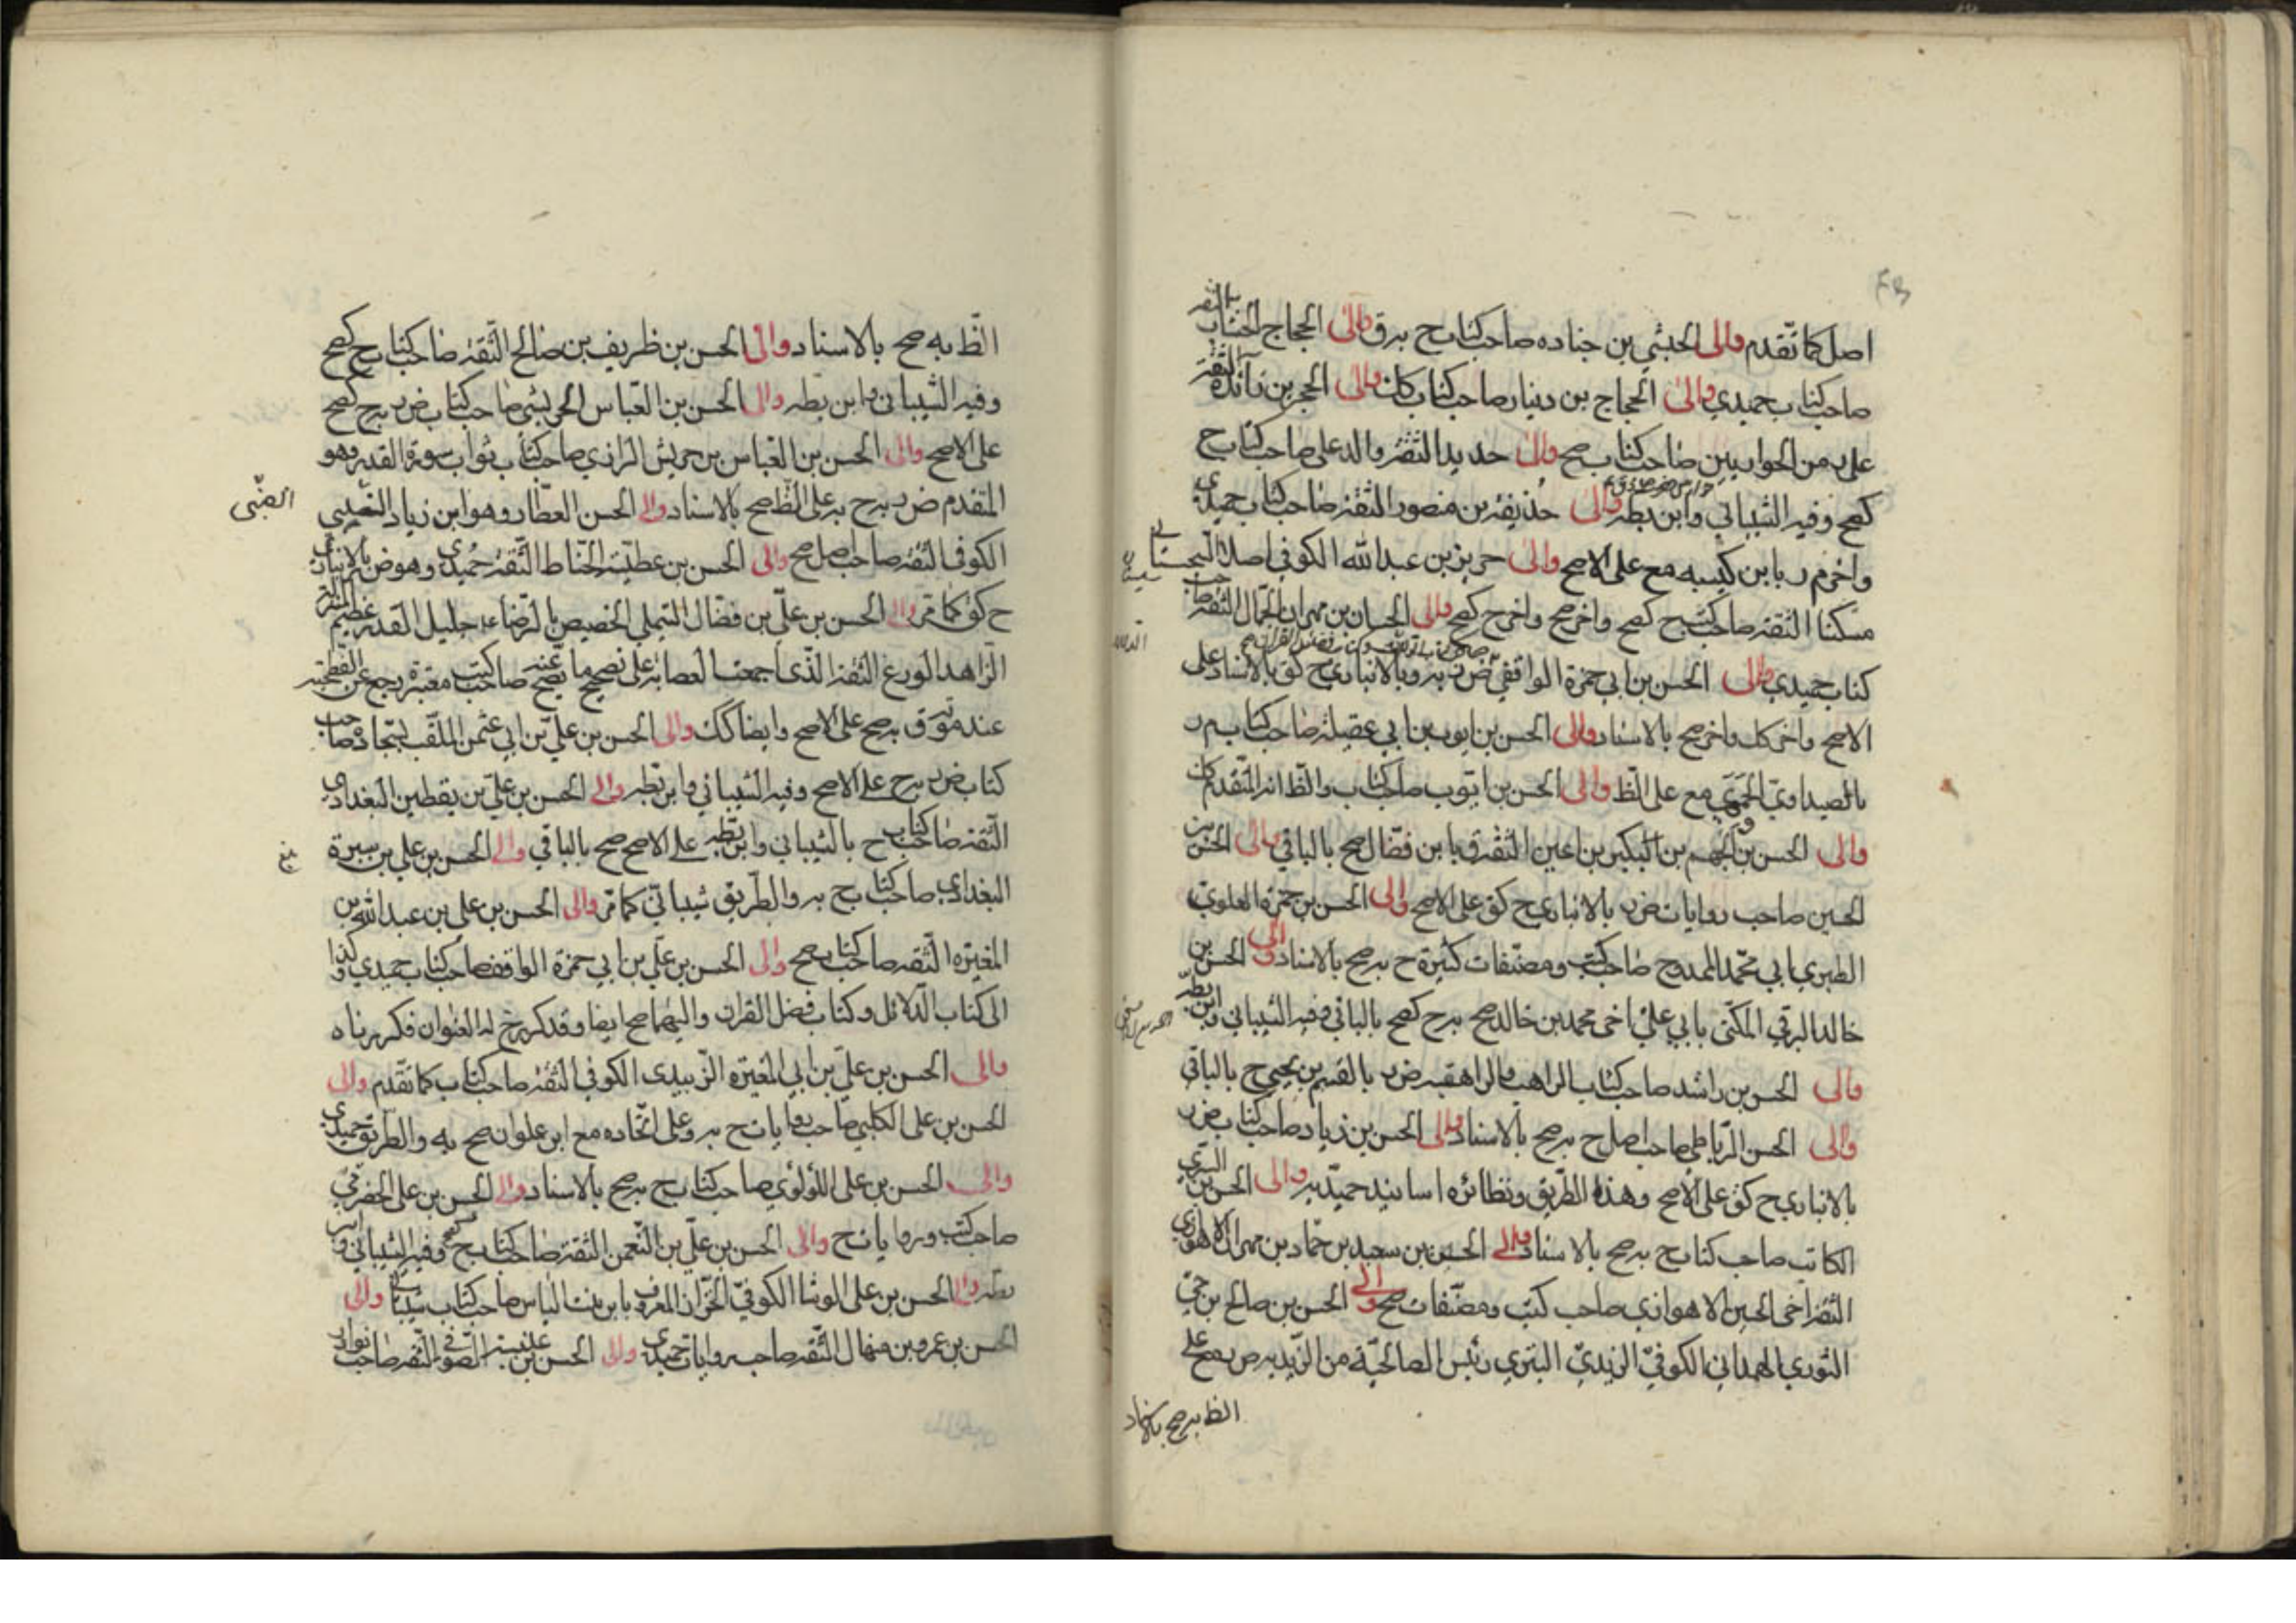 اصل كما تقدم والى الحبشي بن جناده صاحب كتاب ح به ق والى الحجاج الخشاب الثقه
صاحب كتاب حميدي والى الحجاج بن دينار صاحب كتاب كك والى الحجر بن زائدة الثقة
على به من الحواريين صاحب كتاب صح والى حديد الثقة والد على صاحب كتاب ح
كصح وفيه الشيباني وابن بطه والى حذيفة بن منصور الثقة صاحب كتاب حميدي
واخر م ر بابن كيسبه مع على الاصح والى حريز بن عبد الله الكوفي اصلا السجستاني
مسكنا الثقة صاحب كتب ح كصح واخر صح واخر ح كصح والى الحسان بن مهران الجمال الثقة صاحب
كتاب حميدي والى الحسن بن ابي حمزة الواقفي ض ن به وبالانباري ح كق بالاسناد على
الاصح واخر كك واخر صح بالاسناد والى الحسن بن ايوب بن ابي عقيلة صاحب كتاب م ر
بالصيداوي الجهمي مع على الظ والى الحسن بن ايوب صاحب كتاب والظ انه المتقدم كك
والى الحسن بن الجهم بن البكير بن اعين الثقة ق بابن فضال صح بالباقي والى الحسن بن
الحسين صاحب روايات ض ر بالانباري ح كق على الاصح والى الحسن بن حمزة العلوي
الطبري ابي محمد الممدوح صاحب كتب ومصنفات كثيرة ح به صح بالاسناد والى الحسن بن
خالد البرقي المكنى بابي علي اخي محمد بن خالد صح به ح كصح بالباقي وفيه الشيباني وابن بطه
والى الحسن بن راشد صاحب كتاب الراهب والراهبه ض ر بالقسم بن يحيى ح بالباقي
والى الحسن الرباطي صاحب اصل ح به صح بالاسناد والى الحسن بن زياد صاحب كتاب ض ر
بالانباري ح كق على الاصح وهذا الطريق ونظائره اسانيد حميديه والى الحسن بن السري
الكاتب صاحب كتاب ح به صح بالاسناد والى الحسن بن سعيد بن حماد بن مهران الاهوازي
الثقة اخي الحسين الاهوازي صاحب كتب ومصنفات صح والى الحسن بن صالح بن حي
الثوري الهمداني الكوفي الزيدي البتري رئيس الصالحية من الزيديه ض به صح على
الظ به صح بالاسناد
الظ به صح بالاسناد والى الحسن بن ظريف بن صالح الثقة صاحب كتاب ح كصح
وفيه الشيباني وابن بطه والى الحسن بن العباس الحريشي صاحب كتاب ض ر به ح كصح
على الاصح والى الحسن بن العباس بن حريش الرازي صاحب كتاب ثواب سورة القدر وهو
المتقدم ض ر به ح به على الظ صح بالاسناد والى الحسن العطار وهو ابن زياد الضبي
الضبّى
الكوفي الثقة صاحب اصل صح والى الحسن بن عطية الحناط الثقة حميدي وهو ض بالانباري
ح كق كما مر والى الحسن بن علي بن فضال التيملي الخصيص بالرضا ع جليل القدر عظيم المنزلة
الزاهد الورع الثقة الذي اجمعت العصابة على تصحيح ما يصح عنه صاحب كتب معتبرة رجع عن الفطحية
عند موته ق به صح على الاصح وايضا كك والى الحسن بن علي بن ابي عثمن الملقب بسجاده صاحب
كتاب ض ر به ح على الاصح وفيه الشيباني وابن بطه والى الحسن بن علي بن يقطين البغدادي
الثقة صاحب كتاب ح بالشيباني وابن بطه على الاصح صح بالباقي والى الحسن بن علي بن سبرة
البغدادي صاحب كتاب ح به والطريق شيباني كما مر والى الحسن بن علي بن عبد الله بن
المغيره الثقه صاحب كتاب صح والى الحسن بن علي بن ابي حمزة الواقف صاحب كتاب حميدي وكذا
الى كتاب الدلائل وكتاب فضل القران واليهما صح ايضا وقد كرر خ له العنوان فكررناه
والى الحسن بن علي بن ابي المغيره الزبيدي الكوفي الثقة صاحب كتاب كما تقدم والى
الحسن بن على الكلبي صاحب روايات ح به وعلى اتحاده مع ابن علوان صح به والطريق حميدي
والى الحسن بن على اللؤلؤي صاحب كتاب ح به صح بالاسناد والى الحسن بن على الحضرمي
صاحب كتب وروايات ح والى الحسن بن علي بن النعمن الثقة صاحب كتاب ح كصح وفيه الشيباني وابن
بطه والى الحسن بن على الوشا الكوفي الخزاز المعروف بابن بنت الياس صاحب كتاب شيباني والى
الحسن بن عمرو بن منهال الثقه صاحب روايات حميدي والى الحسن بن عنبسة الصوفي الثقه صاحب نوادر